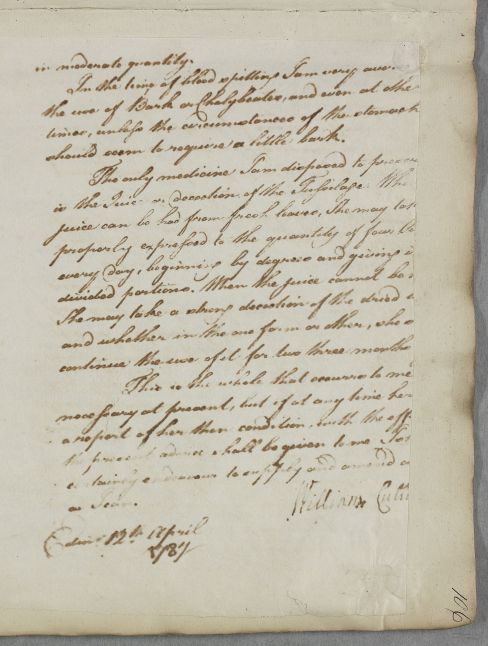 in moderate quantity.
In the time of blood spitting I am very averse
the use of Bark or Chalybeates, and even at othe
times, unless the circumstances of the stomach
should seem to require a little bark.
The only medicine I am disposed to
is the Juice or decoction of the Tussilago. Whe
juice can be had from fresh leaves, She may
properly expressed to the quantity of four
every day, beginning by degrees and giving i
divided portions. When the juice cannot be
She may take a strong decoction of the dried
and whether in the one form or other, she
continue the use of it for two three months
This is the whole that occurs to me
necessary at present, but if at any time her
a report of her then condition, with the eff
the present advice shall be given to me I
certainly endeavour to supply and amend a
as I can.
William Cull
Edinr 12th April
1784
106